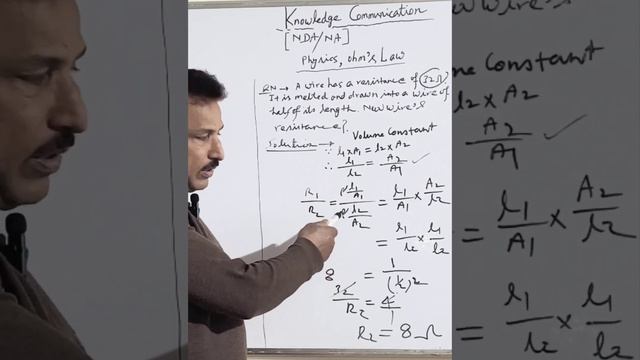 Knowledge Communication
[NDA/NA]
Physics, ohm's Law
QN → A wire has a resistance of 32Ω
It is melted and drawn into a wire of
half of its length. New wire's
resistance?
Solution → Volume Constant
∵ l1 × A1 = l2 × A2
∴ l1/l2 = A2/A1 ✓
R1/R2 = (ρ l1/A1)/(ρ l2/A2) = l1/A1 × A2/l2
= l1/l2 × l1/l2
8 = 1/(½)²
32/R2 = 4/1
R2 = 8Ω
me Constant
l2 × A2
A2/A1 ✓
= l1/A1 × A2/l2
= l1/l2 × l1/l2